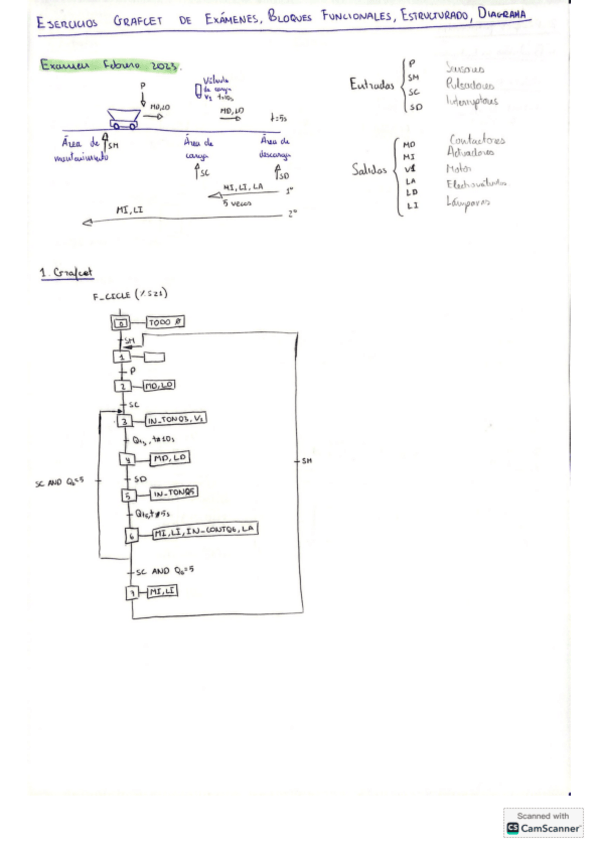 EJERCICIOS GRAFCET DE EXÁMENES, BLOQUES FUNCIONALES, ESTRUCTURADO, DIAGRAMA
Examen Febrero 2023.
P
MD, LD
Válvula
de carga
V1 t=10s
MD, LD
t=5s
Área de
SM
Área de
carga
Área de
descarga
SC
SD
MI, LI, LA
1º
5 veces
MI, LI
2º
Entradas
P
SM
SC
SD
Sensores
Pulsadores
Interruptores
Salidas
MD
MI
V1
LA
LD
LI
Contactores
Actuadores
Motor
Lámparas
1. Grafcet
F_CICLE (%S21)
0
TODO Ø
SM
1
P
2
MD, LD
SC
3
IN_TON03, V1
4
MD, LD
SD
5
6
SC AND Q6=5
7
MI, LI
SM
Scanned with
CS CamScanner